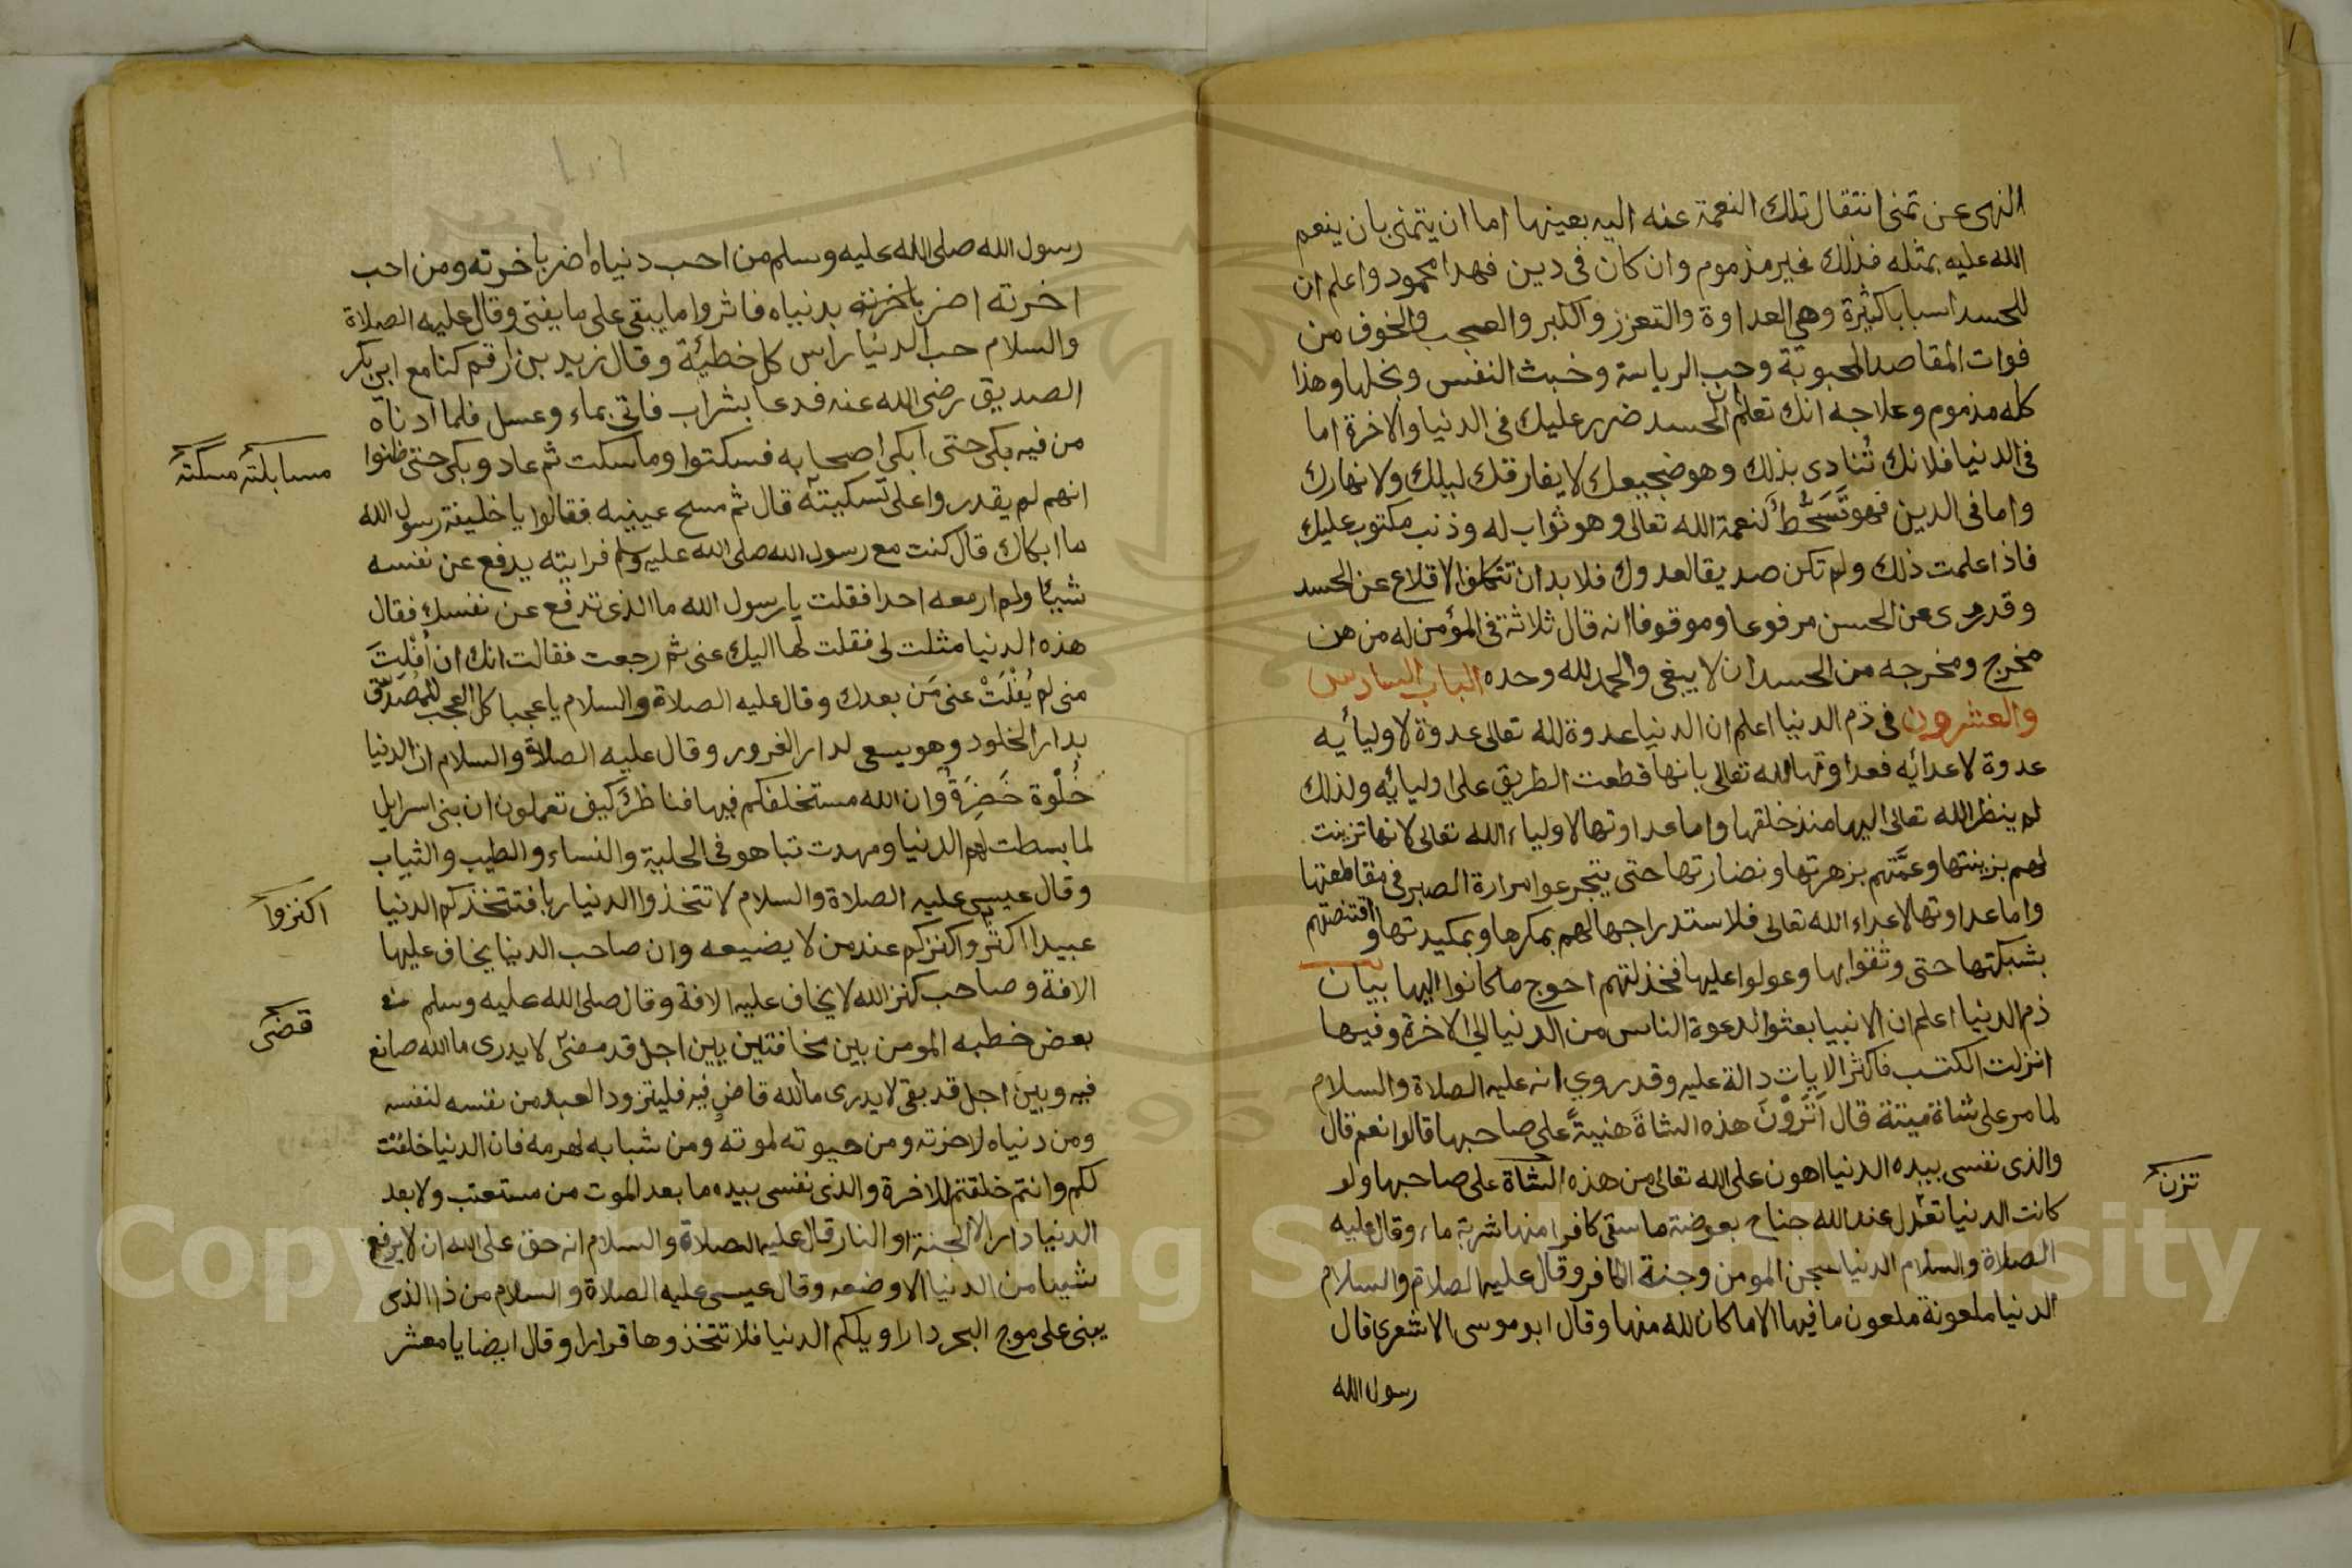 النهى عن تمنى انتقال تلك النعمة عنه اليه بعينها اما ان يتمنى بان ينعم
الله عليه بمثله فذلك غير مذموم وان كان فى دين فهذا محمود واعلم ان
للحسد اسبابا كثيرة وهي العداوة والتعزز والكبر والعجب والخوف من
فوات المقاصد المحبوبة وحب الرياسة وخبث النفس وبخلها وهذا
كله مذموم وعلاجه انك تعلم ان الحسد ضرر عليك فى الدنيا والاخرة اما
فى الدنيا فلانك تُنادى بذلك وهو ضجيعك لا يفارقك ليلك ولا نهارك
واما فى الدين فهو تَسَخُّط لنعمة الله تعالى وهو ثواب له وذنب مكتوب عليك
فاذا علمت ذلك ولم تكن صديقا لعدوك فلا بد ان تتكلف الاقلاع عن الحسد
وقد روى عن الحسن مرفوعا وموقوفا انه قال ثلاثة فى المؤمن له من هن
مخرج ومخرجه من الحسد ان لا يبغى والحمد لله وحده الباب السادس
والعشرون فى ذم الدنيا اعلم ان الدنيا عدوة لله تعالى عدوة لاوليائه
عدوة لاعدائه فعداوتها لله تعالى بانها قطعت الطريق على اوليائه ولذلك
لم ينظر الله تعالى اليها منذ خلقها واما عداوتها لاولياء الله تعالى لانها تزينت
لهم بزينتها وعمّتهم بزهرتها ونضارتها حتى يتجرعوا مرارة الصبر فى مقاطعتها
واما عداوتها لاعداء الله تعالى فلاستدراجها لهم بمكرها وبمكيدتها واقتنصتهم
بشبكتها حتى وثقوا بها وعولوا عليها فخذلتهم احوج ما كانوا اليها بيان
ذم الدنيا اعلم ان الانبيا بعثوا لدعوة الناس من الدنيا الى الاخرة وفيها
انزلت الكتب فاكثر الايات دالة عليه وقد روي انه عليه الصلاة والسلام
لما مر على شاة ميتة قال اَتَرَوْنَ هذه الشاةَ هنيةً على صاحبها قالوا نعم قال
والذى نفسى بيده الدنيا اهون على الله تعالى من هذه الشاة على صاحبها ولو
كانت الدنيا تعدل عند الله جناح بعوضة ما سقى كافرا منها شربة ماء وقال عليه
الصلاة والسلام الدنيا سجن المومن وجنة الكافر وقال عليه الصلاة والسلام
الدنيا ملعونة ملعون ما فيها الا ما كان لله منها وقال ابو موسى الاشعرى قال
رسول الله
تزن
رسول الله صلى الله عليه وسلم من احب دنياه اضر باخرته ومن احب
اخرته اضر باخرته بدنياه فاثروا ما يبقى على ما يفنى وقال عليه الصلاة
والسلام حب الدنيا راس كل خطيئة وقال زيد بن ارقم كنا مع ابي بكر
الصديق رضى الله عنه فدعا بشراب فاتى بماء وعسل فلما ادناه
من فيه بكى حتى ابكى اصحابه فسكتوا وما سكت ثم عاد وبكى حتى ظنوا
انهم لم يقدروا على تسكيته قال ثم مسح عينيه فقالوا يا خليفة رسول الله
ما ابكاك قال كنت مع رسول الله صلى الله عليه وسلم فرايته يدفع عن نفسه
شيئا ولم ار معه احدا فقلت يا رسول الله ما الذى تدفع عن نفسك فقال
هذه الدنيا مثلت لى فقلت لها اليك عنى ثم رجعت فقالت انك ان اُفْلِتَ
منى لم يُفْلَتْ عنى مَن بعدك وقال عليه الصلاة والسلام يا عجبا كل العجب للمُصَدِّق
بدار الخلود وهو يسعى لدار الغرور وقال عليه الصلاة والسلام ان الدنيا
حُلْوة خَضِرَةٌ وان الله مستخلفكم فيها فناظر كيف تعملون ان بنى اسرايل
لما بسطت لهم الدنيا ومهدت تباهو فى الحلية والنساء والطيب والثياب
وقال عيسى عليه الصلاة والسلام لا تتخذوا الدنيا ربا فتتخذكم الدنيا
عبيدا اكثروا كنزكم عند من لا يضيعه وان صاحب الدنيا يخاف عليها
الافة وصاحب كنز الله لا يخاف عليه الافة وقال صلى الله عليه وسلم فى
بعض خطبه المومن بين مخافتين بين اجل قد مضى لا يدرى ما الله صانع
فيه وبين اجل قد بقى لا يدرى ما لله قاض فيه فليتزود العبد من نفسه لنفسه
ومن دنياه لاخرته ومن حيوته لموته ومن شبابه لهرمه فان الدنيا خلقت
لكم وانتم خلقتم للاخرة والذى نفسى بيده ما بعد الموت من مستعتب ولا بعد
الدنيا دار الا الجنة او النار قال عليه الصلاة والسلام انه حق على الله ان لا يرفع
شيئا من الدنيا الا وضعه وقال عيسى عليه الصلاة والسلام من ذا الذى
يبنى على موج البحر دارا ويلكم الدنيا فلا تتخذوها قرارا وقال ايضا يا معشر
اكنزوا
قضى
Copyright © King Saud University